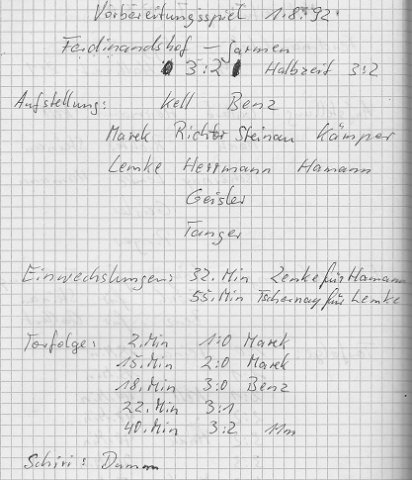 Vorbereitungsspiel 1.8.92
Ferdinandshof – Jarmen
3:2 Halbzeit 3:2
Aufstellung: Kell Benz
Marek Richter Steinau Kämper
Lemke Herrmann Hamann
Geisler
Tanger
Einwechslungen: 32. Min Zenke für Hamann
55. Min Tschernay für Lemke
Torfolge: 2. Min 1:0 Marek
15. Min 2:0 Marek
18. Min 3:0 Benz
22. Min 3:1
40. Min 3:2 11m
Schiri: Damm